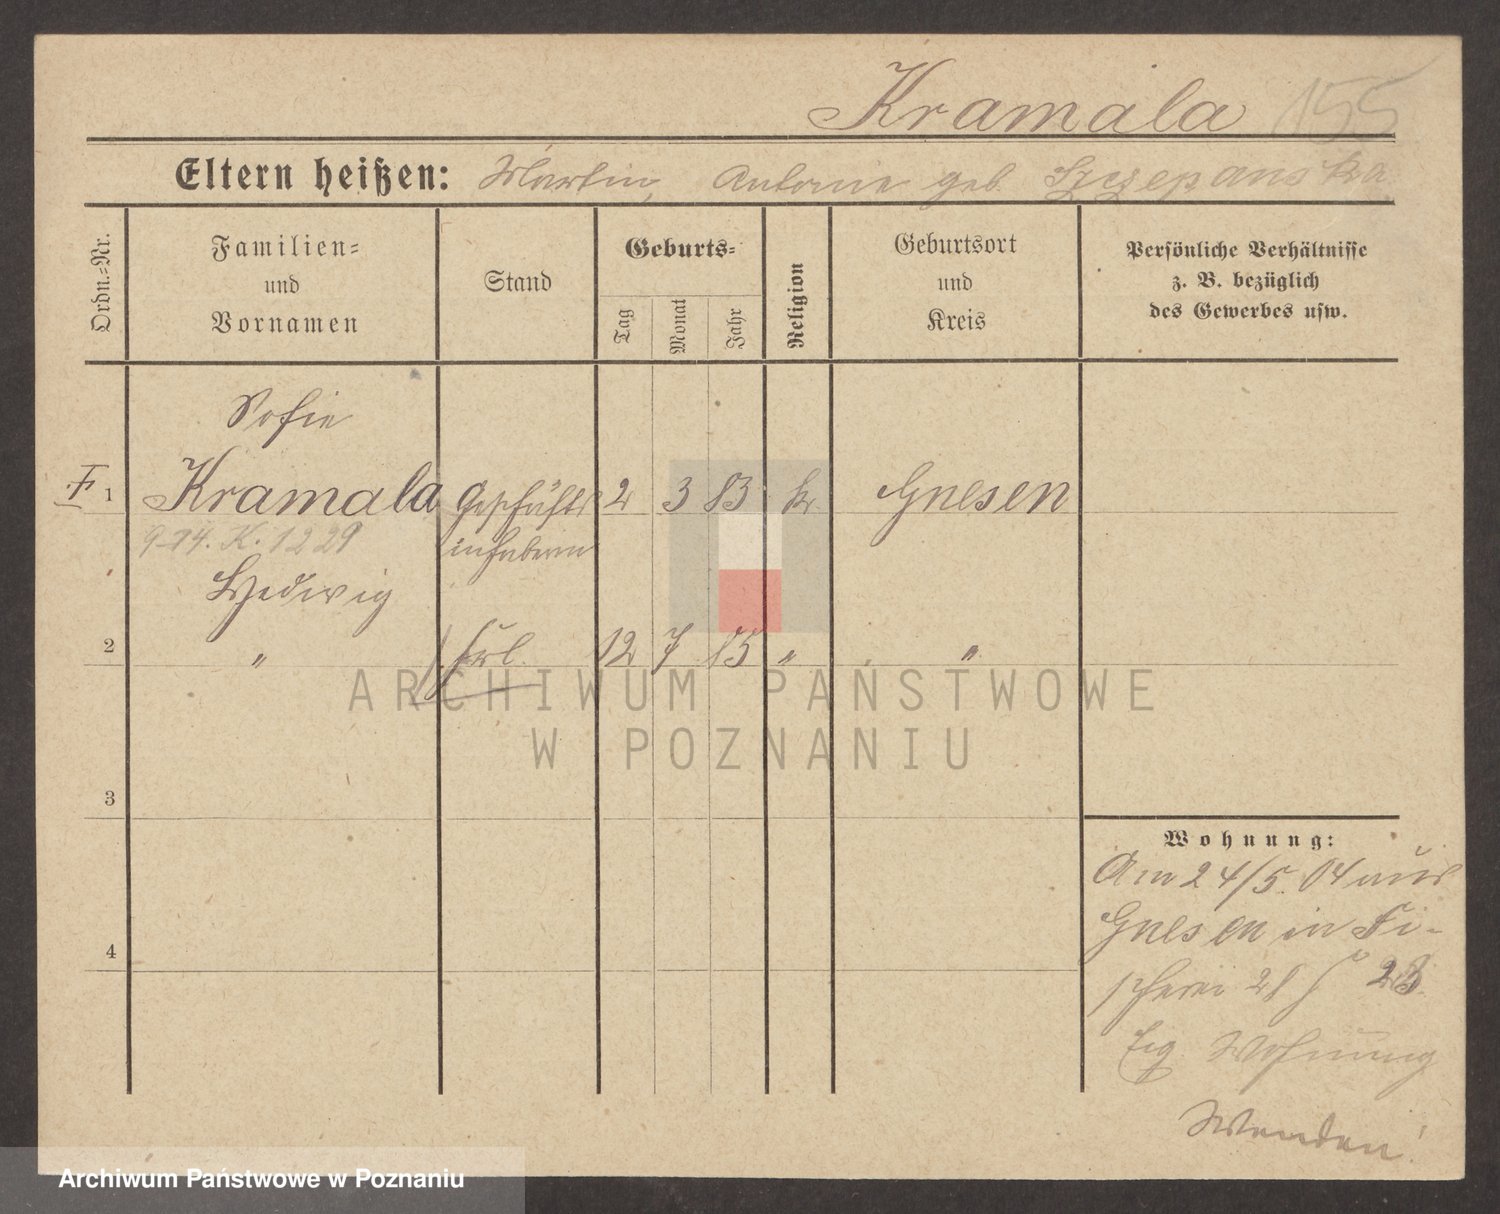 Kramala 155
Eltern heißen: Martin, Antonie geb. Szczepanska
Ordn.=Nr.
Familien=
und
Vornamen
Stand
Geburts=
Tag
Monat
Jahr
Religion
Geburtsort
und
Kreis
Persönliche Verhältnisse
z. B. bezüglich
des Gewerbes usw.
Sofie
F 1 Kramala Geschäfts 2 3 83 k Gnesen
9 14. K. 1229 inhaberin
Hedwig
2 " Frl. 12 7 85 " "
3
4
Wohnung:
Am 24/5. 04 aus
Gnesen in Fi-
scherei 23
Eig. Wohnung
Wenden!
ARCHIWUM PAŃSTWOWE
W POZNANIU
Archiwum Państwowe w Poznaniu